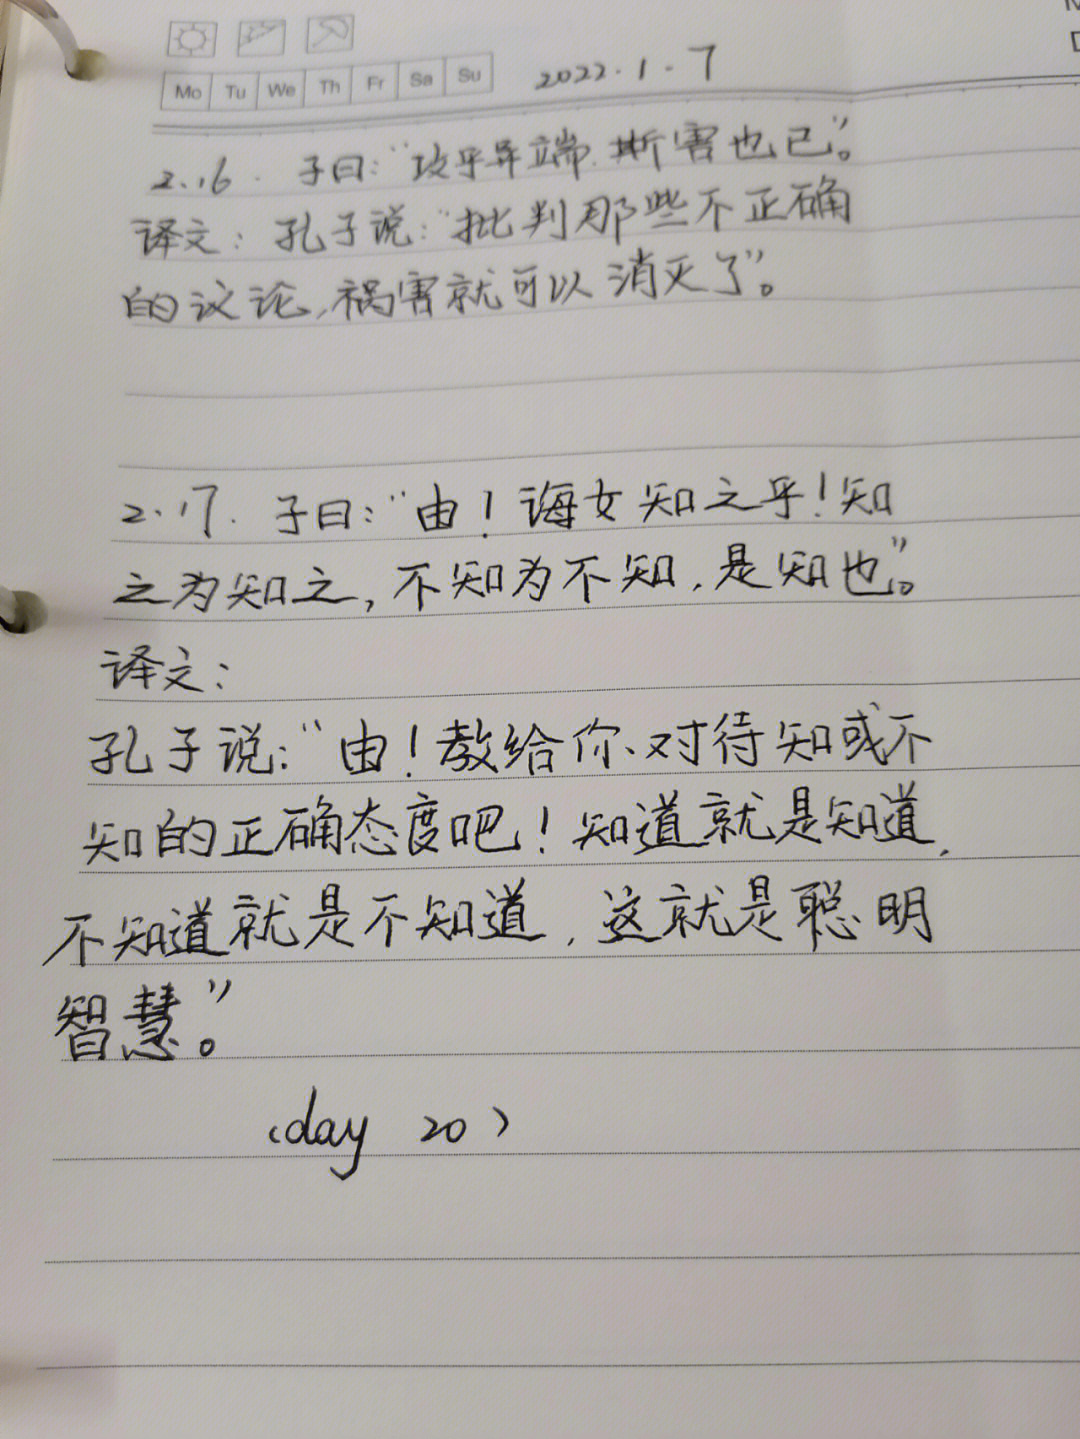 Mo Tu We Th Fr Sa Su 2022.1.7
2.16. 子曰:“攻乎异端,斯害也已”。
译文:孔子说:“批判那些不正确
的议论,祸害就可以消灭了”。
2.17. 子曰:“由!诲女知之乎!知
之为知之,不知为不知,是知也”。
译文:
孔子说:“由!教给你、对待知或不
知的正确态度吧!知道就是知道,
不知道就是不知道,这就是聪明
智慧。”
(day 20)